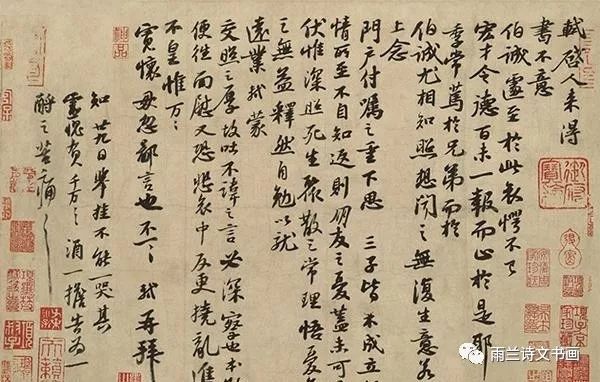 軾啓人來得
書不意
伯誠遽至於此哀愕不已
宏才令德百未一報而止於是耶
季常篤於兄弟而於
伯誠尤相知照想聞之無復生意若
上念
門户付囑之重下思三子皆不成立
情所至不自知返則朋友之憂蓋未可
伏惟深照死生聚散之常理悟憂
之無益釋然自勉以就
遠業軾蒙
交照之厚故吐不諱之言必深察也本
便往面慰又恐悲哀中反更撓亂進
不皇惟万万
寬懷毋忽鄙言也不一一軾再拜
知廿九日舉掛不能一哭其
靈愧負千万千万酒一擔告為一
酹之苦痛苦痛
雨兰诗文书画